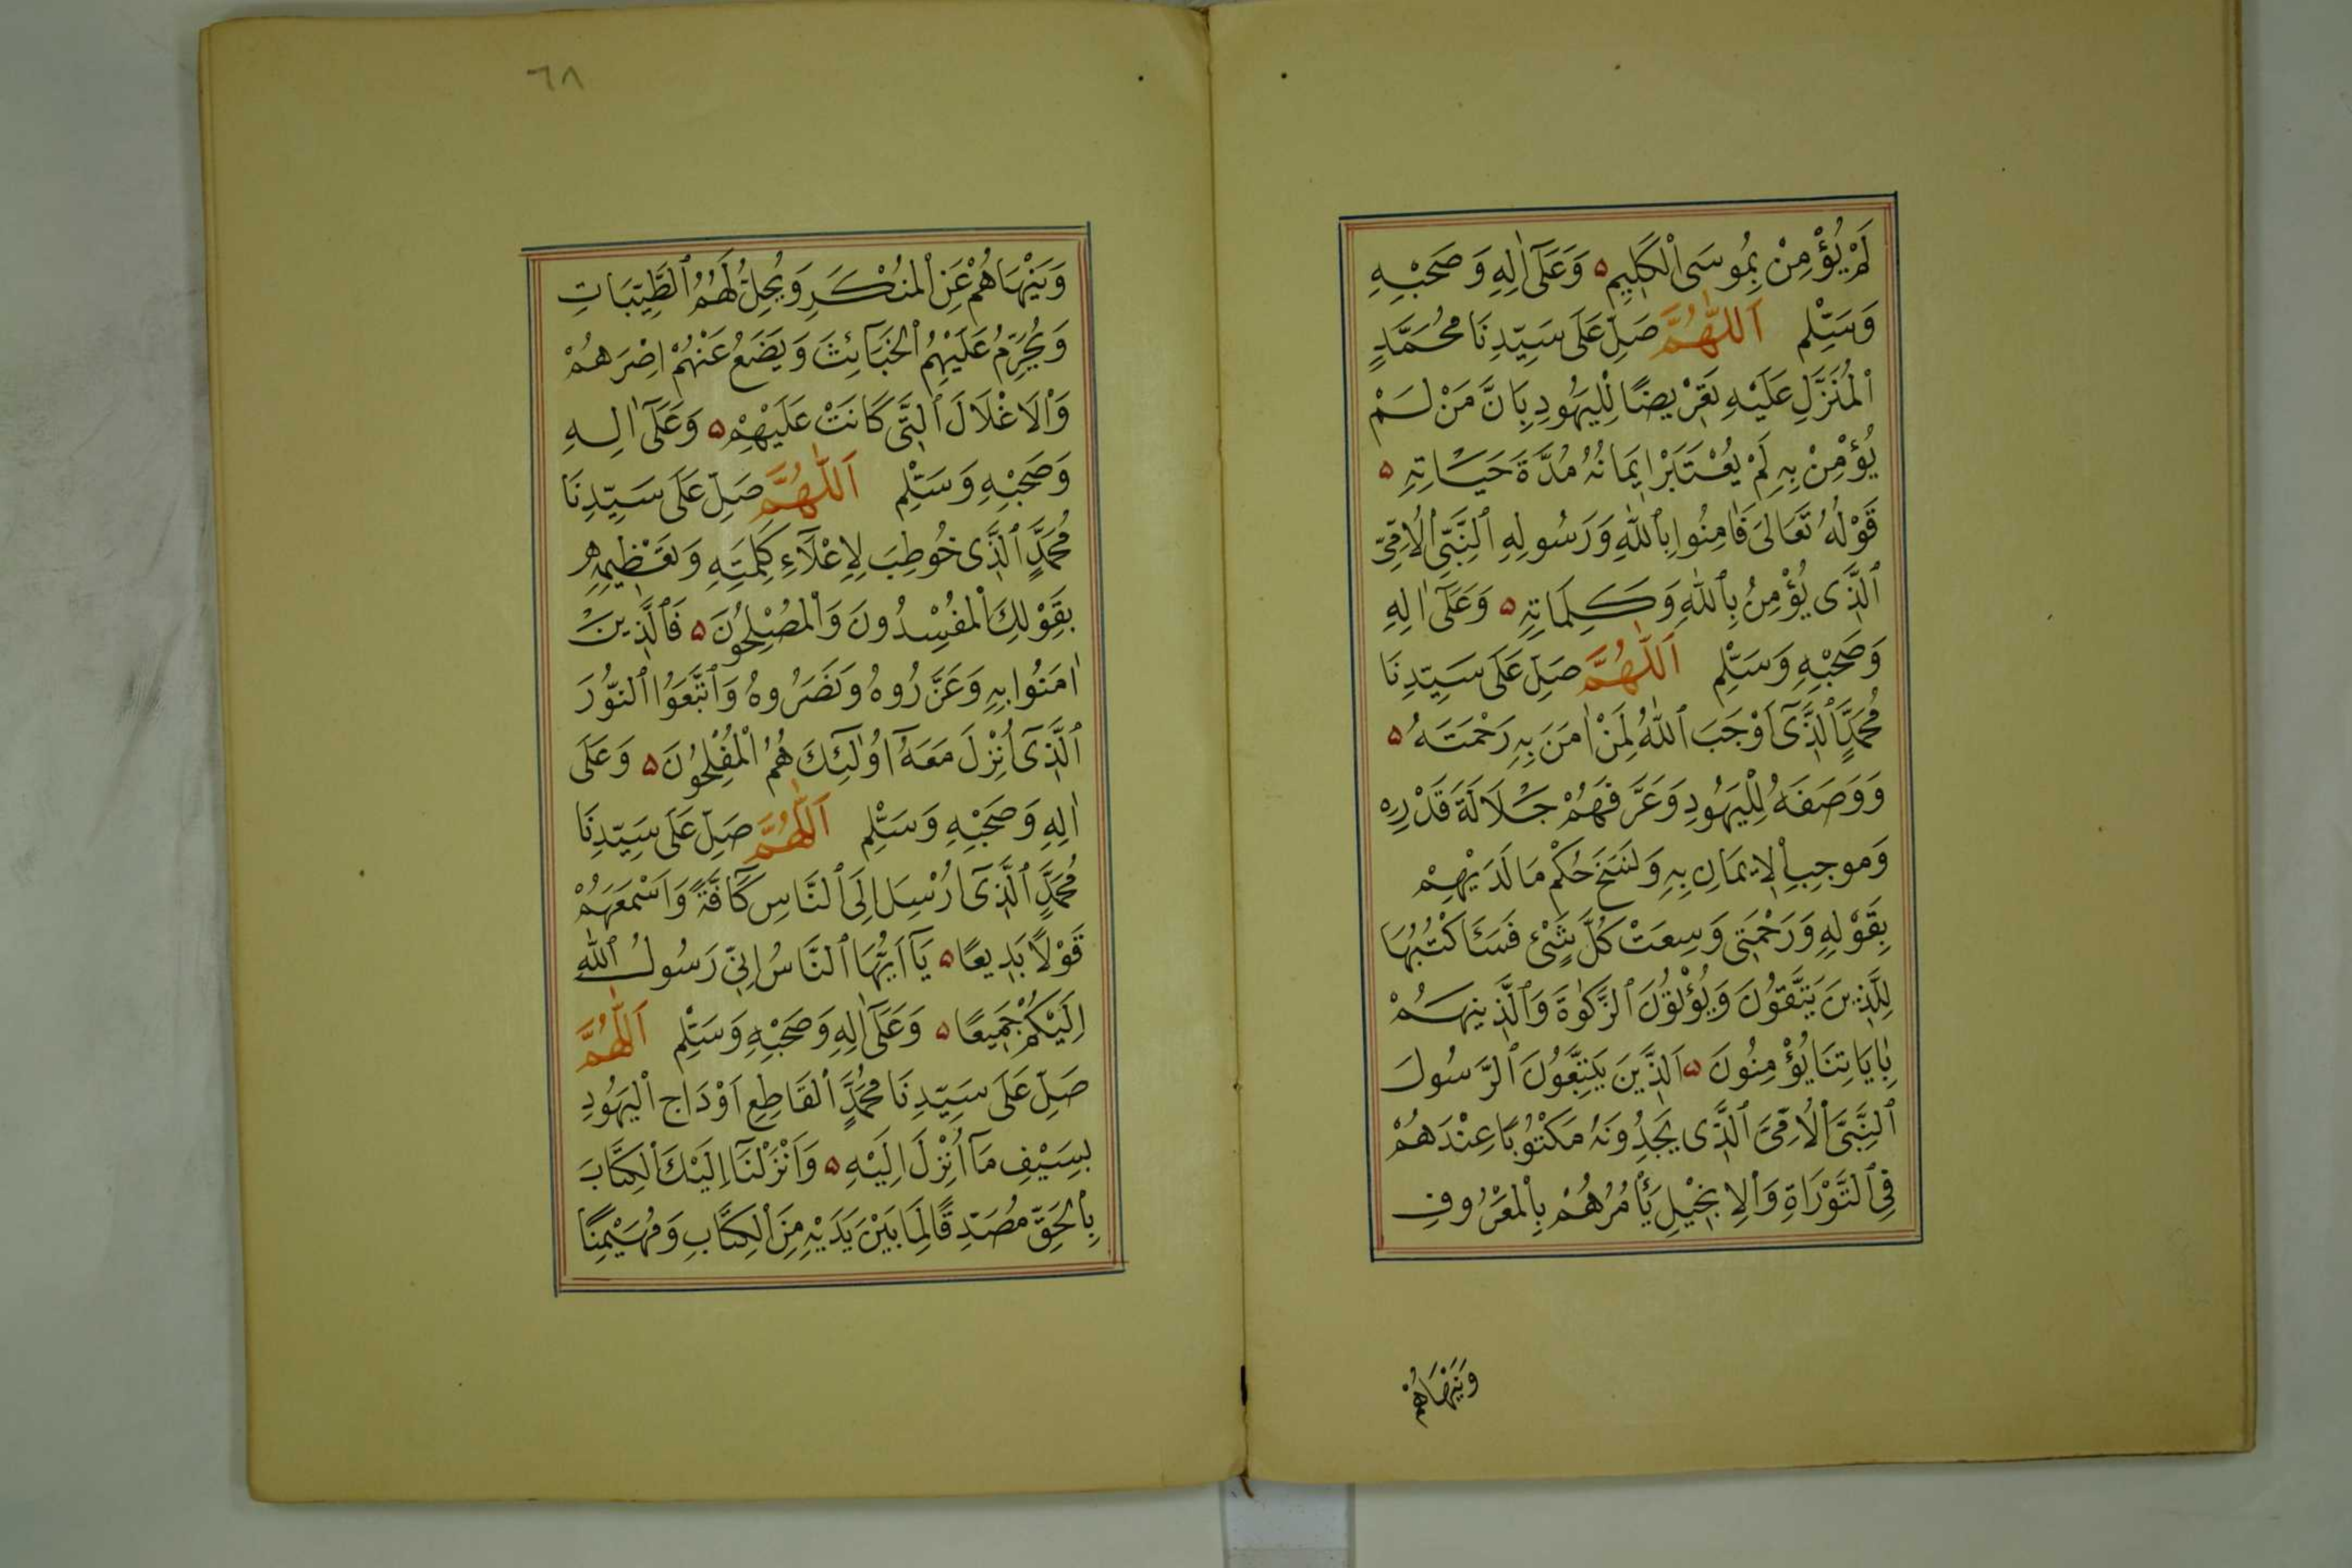 لَمْ يُؤْمِنْ بِمُوسَى الْكَلِيمِ ۵ وَعَلَى اٰلِهِ وَصَحْبِهِ
وَسَلِّمْ اَللّٰهُمَّ صَلِّ عَلَى سَيِّدِنَا مُحَمَّدٍ
الْمُنَزَّلِ عَلَيْهِ تَعْرِيضًا لِلْيَهُودِ بِاَنَّ مَنْ لَمْ
يُؤْمِنْ بِهِ لَمْ يُعْتَبَرْ اِيمَانُهُ مُدَّةَ حَيَاتِهِ ۵
قَوْلُهُ تَعَالَى فَاٰمِنُوا بِاللّٰهِ وَرَسُولِهِ النَّبِيِّ الْاُمِّيِّ
الَّذِى يُؤْمِنُ بِاللّٰهِ وَكَلِمَاتِهِ ۵ وَعَلَى اٰلِهِ
وَصَحْبِهِ وَسَلِّمْ اَللّٰهُمَّ صَلِّ عَلَى سَيِّدِنَا
مُحَمَّدٍ الَّذِى اَوْجَبَ اللّٰهُ لِمَنْ اٰمَنَ بِهِ رَحْمَتَهُ ۵
وَوَصَفَهُ لِلْيَهُودِ وَعَرَّفَهُمْ جَلَالَةَ قَدْرِهِ
وَمُوجِبِ الْاِيمَانِ بِهِ وَنَسَخَ حُكْمِ مَا لَدَيْهِمْ
بِقَوْلِهِ وَرَحْمَتِى وَسِعَتْ كُلَّ شَىْءٍ فَسَاَكْتُبُهَا
لِلَّذِينَ يَتَّقُونَ وَيُؤْتُونَ الزَّكٰوةَ وَالَّذِينَ هُمْ
بِاٰيَاتِنَا يُؤْمِنُونَ ۵ اَلَّذِينَ يَتَّبِعُونَ الرَّسُولَ
النَّبِىَّ الْاُمِّىَّ الَّذِى يَجِدُونَهُ مَكْتُوبًا عِنْدَهُمْ
فِى التَّوْرَاةِ وَالْاِنْجِيلِ يَأْمُرُهُمْ بِالْمَعْرُوفِ
وَيَنْهَاهُمْ
٦٨
وَيَنْهَاهُمْ عَنِ الْمُنْكَرِ وَيُحِلُّ لَهُمُ الطَّيِّبَاتِ
وَيُحَرِّمُ عَلَيْهِمُ الْخَبَائِثَ وَيَضَعُ عَنْهُمْ اِصْرَهُمْ
وَالْاَغْلَالَ الَّتِى كَانَتْ عَلَيْهِمْ ۵ وَعَلَى اٰلِهِ
وَصَحْبِهِ وَسَلِّمْ اَللّٰهُمَّ صَلِّ عَلَى سَيِّدِنَا
مُحَمَّدٍ الَّذِى خُوطِبَ لِاِعْلَاءِ كَلِمَتِهِ وَتَعْظِيمِهِ
بِقَوْلِكَ الْمُفْسِدُونَ وَالْمُصْلِحُونَ ۵ فَالَّذِينَ
اٰمَنُوا بِهِ وَعَزَّرُوهُ وَنَصَرُوهُ وَاتَّبَعُوا النُّورَ
الَّذِى اُنْزِلَ مَعَهُ اُولٰئِكَ هُمُ الْمُفْلِحُونَ ۵ وَعَلَى
اٰلِهِ وَصَحْبِهِ وَسَلِّمْ اَللّٰهُمَّ صَلِّ عَلَى سَيِّدِنَا
مُحَمَّدٍ الَّذِى اُرْسِلَ اِلَى النَّاسِ كَافَّةً وَاَسْمَعَهُمْ
قَوْلًا بَدِيعًا ۵ يَا اَيُّهَا النَّاسُ اِنِّى رَسُولُ اللّٰهِ
اِلَيْكُمْ جَمِيعًا ۵ وَعَلَى اٰلِهِ وَصَحْبِهِ وَسَلِّمْ اَللّٰهُمَّ
صَلِّ عَلَى سَيِّدِنَا مُحَمَّدٍ الْقَاطِعِ اَوْدَاجِ الْيَهُودِ
بِسَيْفِ مَا اُنْزِلَ اِلَيْهِ ۵ وَاَنْزَلْنَا اِلَيْكَ الْكِتَابَ
بِالْحَقِّ مُصَدِّقًا لِمَا بَيْنَ يَدَيْهِ مِنَ الْكِتَابِ وَمُهَيْمِنًا